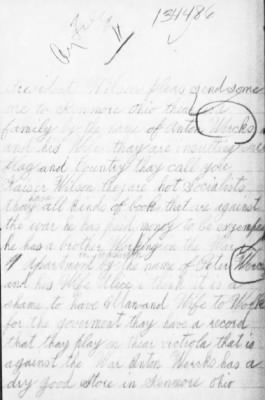 134486
President Wilson pleas send some
me to Kenmore ohio their is
family by the name of Anton Wercks
and his Wife they are insulting our
flag and Country they call you
Kaiser Wilson they are hot Socialists
they have all kinds of books that are against
the war he has paid money to be exempted
he has a brother Working in the War
Department by the name of Peter Wercks
and his Wife Alice I think it is a
shame to have Man and Wife to Work
for the goverment they have a record
that they play on their victrola that is
against the War Anton Wercks has a
dry good store in Kenmore ohio